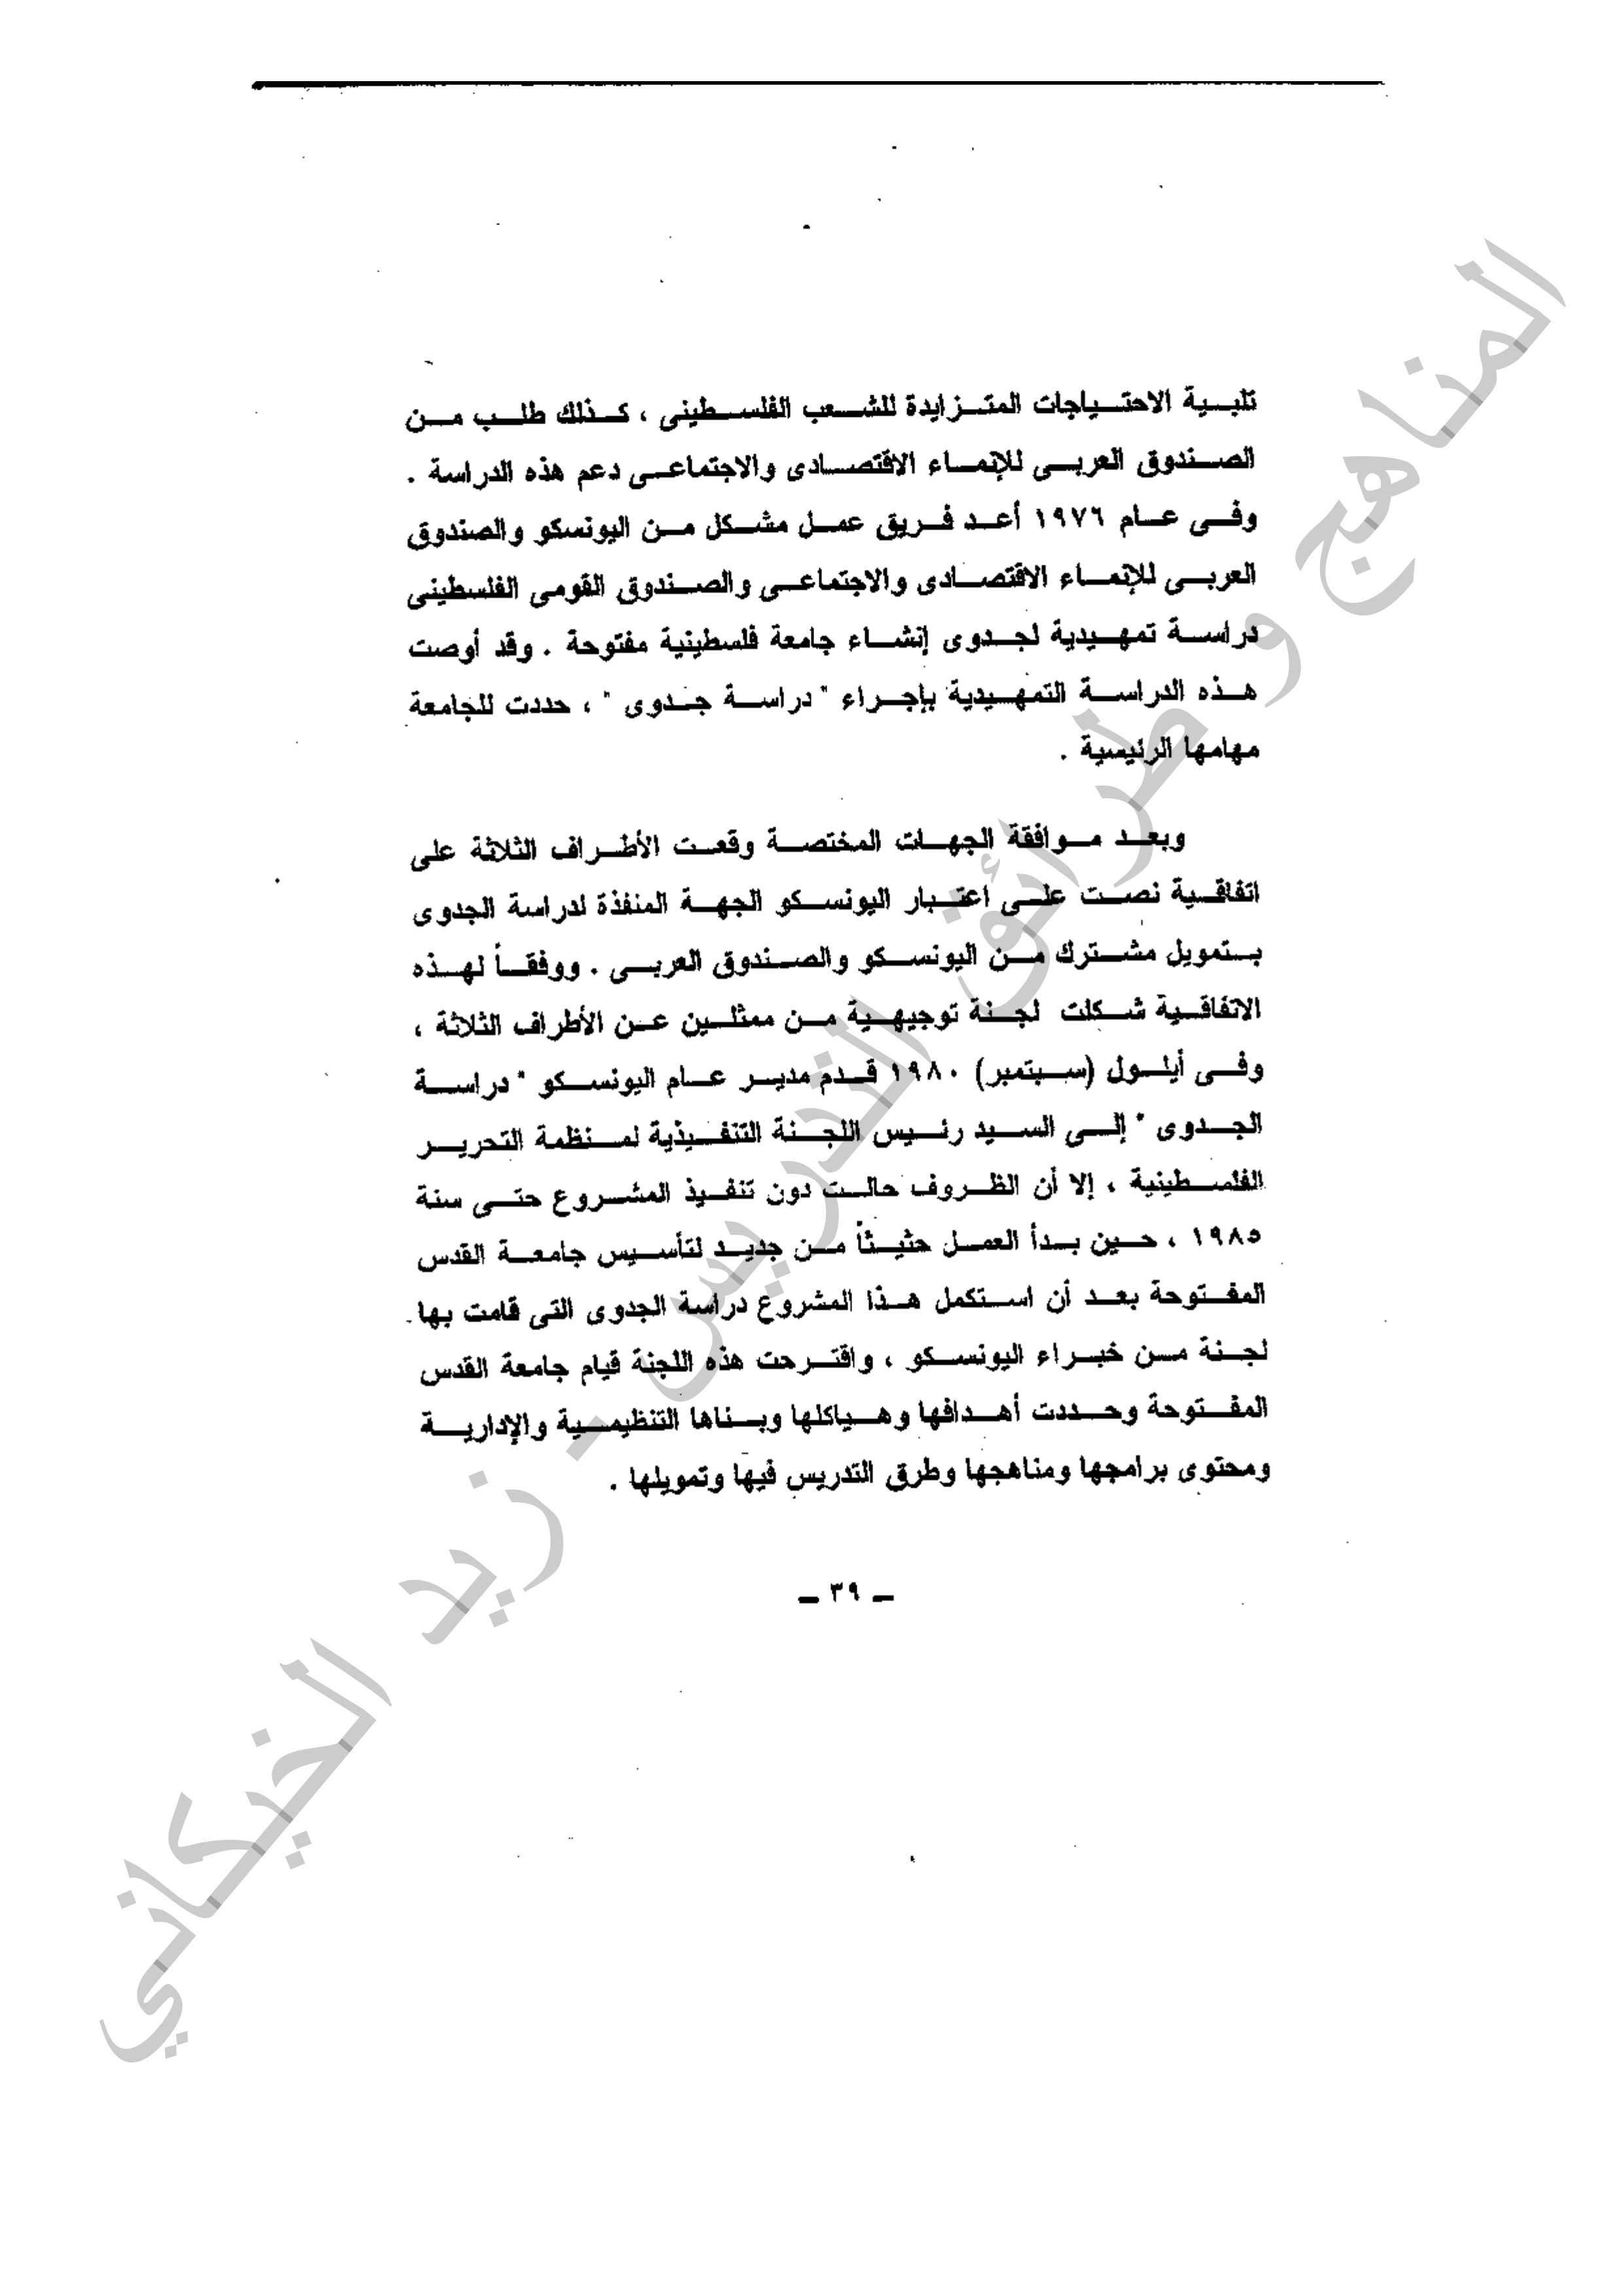 تلبية الاحتياجات المتزايدة للشعب الفلسطينى ، كذلك طلب من
الصندوق العربى للإنماء الاقتصادى والاجتماعى دعم هذه الدراسة .
وفى عام ١٩٧٦ أعد فريق عمل مشكل من اليونسكو والصندوق
العربى للإنماء الاقتصادى والاجتماعى والصندوق القومى الفلسطينى
دراسة تمهيدية لجدوى إنشاء جامعة فلسطينية مفتوحة . وقد أوصت
هذه الدراسة التمهيدية بإجراء " دراسة جدوى " ، حددت للجامعة
مهامها الرئيسية .
وبعد موافقة الجهات المختصة وقعت الأطراف الثلاثة على
اتفاقية نصت على اعتبار اليونسكو الجهة المنفذة لدراسة الجدوى
بتمويل مشترك من اليونسكو والصندوق العربى . ووفقاً لهذه
الاتفاقية شكلت لجنة توجيهية من ممثلين عن الأطراف الثلاثة ،
وفى أيلول (سبتمبر) ١٩٨٠ قدم مدير عام اليونسكو " دراسة
الجدوى " إلى السيد رئيس اللجنة التنفيذية لمنظمة التحرير
الفلسطينية ، إلا أن الظروف حالت دون تنفيذ المشروع حتى سنة
١٩٨٥ ، حين بدأ العمل حثيثاً من جديد لتأسيس جامعة القدس
المفتوحة بعد أن استكمل هذا المشروع دراسة الجدوى التى قامت بها
لجنة من خبراء اليونسكو ، واقترحت هذه اللجنة قيام جامعة القدس
المفتوحة وحددت أهدافها وهياكلها وبناها التنظيمية والإدارية
ومحتوى برامجها ومناهجها وطرق التدريس فيها وتمويلها .
ــ ٣٩ ــ
المناهج و طرائق التدريس - زيد الخيكاني